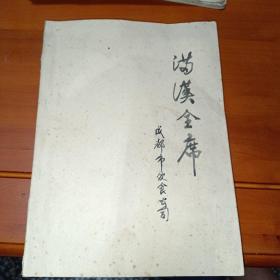 满汉全席
成都市饮食公司